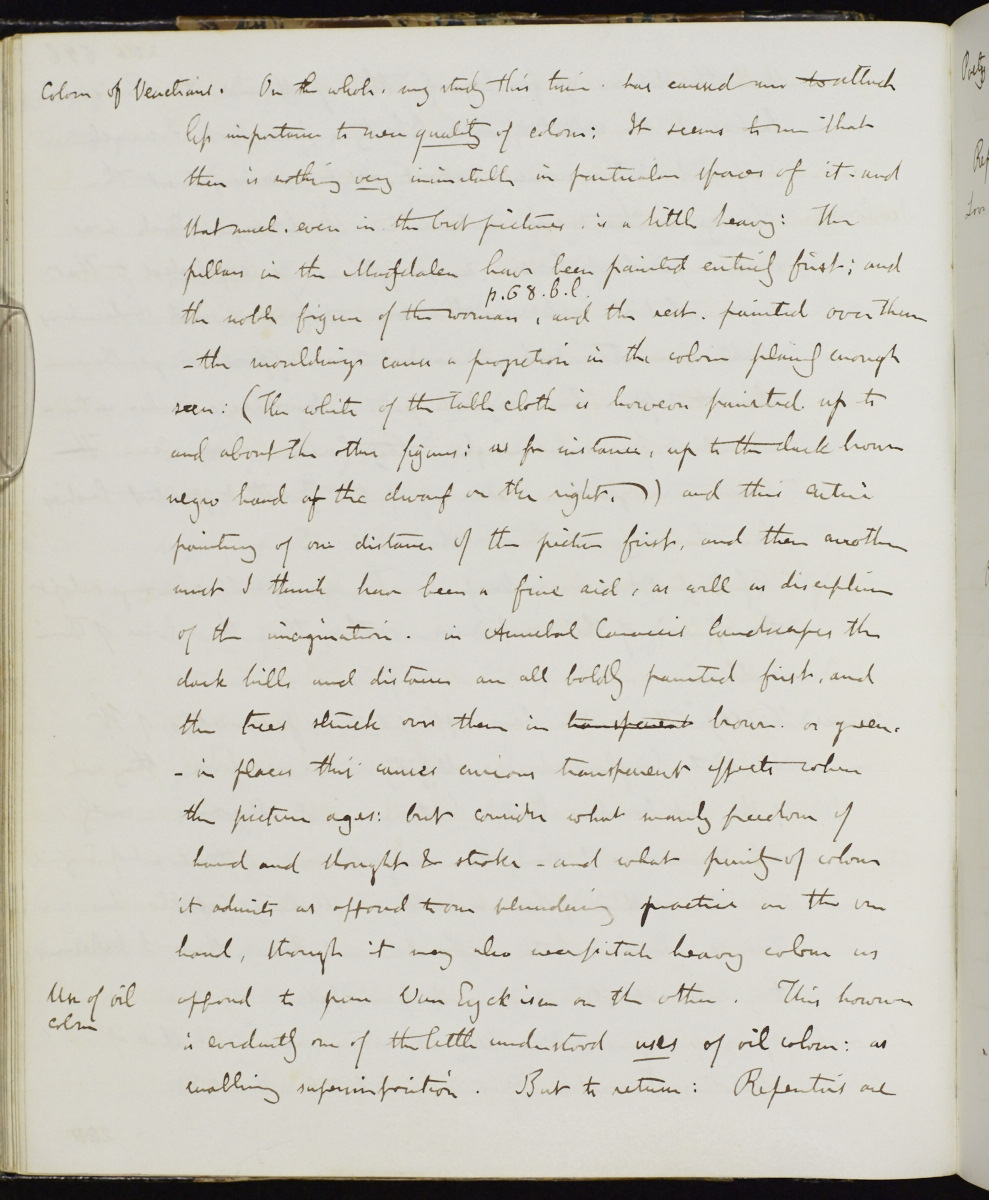 Colour of Venetians. On the whole. my study this time. has caused me to attach
less importance to mere quality of colour: It seems to me that
there is nothing very inimitable in particular spaces of it - and
that much. even in the best pictures. is a little heavy: The
pillars in the Magdalen have been painted entirely first; and
p. 68. b.l.
the noble figure of the woman, and the rest. painted over them
- the mouldings cause a projection in the colour plainly enough
seen: (The white of the table cloth is however painted. up to
and about the other figures: as for instance, up to the dark brown
negro hand of the dwarf on the right.) and this entire
painting of one distance of the picture first, and then another
must I think have been a fine aid, as well as discipline
of the imagination. in Annibal Caraccis landscapes the
dark hills and distance are all boldly painted first, and
the trees struck over them in transparent brown. or green.
- in places this causes curious transparent effects when
the picture ages: but consider what manly freedom of
hand and thought & stroke - and what purity of colour
it admits as opposed to our blundering practice on the one
hand, though it may also necessitate heavy colour as
Use of oil
colour
opposed to pure Van Eyckism on the other. This however
is evidently one of the little understood uses of oil colour: as
enabling superimposition. But to return: Repentirs are